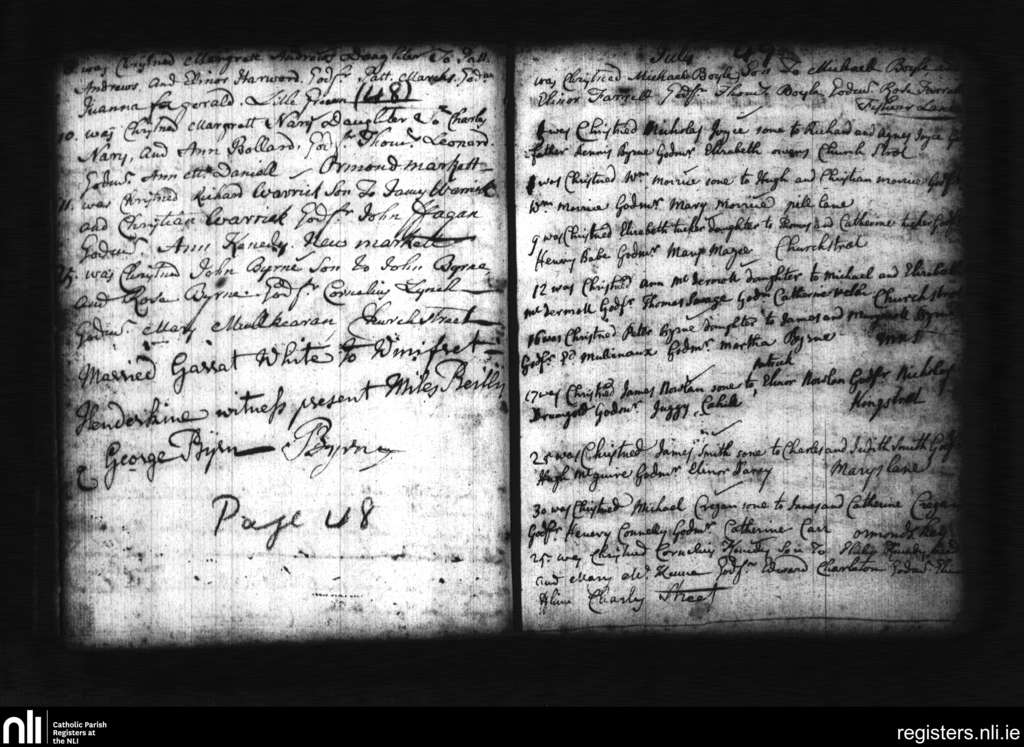 was Christned Margrett Andrews Daughter To Patt.
Andrews, and Elinor Harwood. Godfr. Patt. Godmr
Juanna fitzgerald. Little Green (48)
10. was Christned Margrett Nary Daughter To Charles
Nary, and Ann Bollard, Godfr. Thos. Leonard.
Godmr. Ann Mc. Daniall - Ormond markett-
11. was Christned Richard Warrick Son To James Warrick
and Christian Warrick Godfr. John ffagan
Godmr. Ann Kenedy. New markett
25. was Christned John Byrne Son to John Byrne
and Rose Byrne. Godfr. Cornelius Lynch
Godmr. Mary Mullkearan Church street
Married Garrat White to Winifret
Henderkine witness present Miles Reilly
& George Byrn Byrne
Page 48
July 49
was Christned Michael Boyle Son To Michael Boyle and
Elinor Farrell Godfr. Thomas Boyle Godmr. Rose
Lane
was Christned Nicholas Joyce sone to Richard and Agnes Joyce god
father Dennis Byrne Godmr. Elizabeth owens Church Street
was Christned Wm. morrice sone to Hugh and Christian morrice Godfr
Wm morrice Godmr Mary morrice pill lane
9 was Christned Elizabeth tucker daughter to thomas and Catherine tucker Godfr
Henery Godmr. Mary Magee Churchstreet
12 was Christned ann Mc dermott daughter to Michael and Elizabeth
Mc dermott Godfr Thomas Savage Godm Catharine welsh Church street
16 was Christned Byrne daughter to James and Byrne
Godfr Pd mulinaux Godmr. martha Byrne
patrick
17 was Christned James Nowlan sone to Elinor Nowlan Godfr Nicholas
Godmr. Juggy Kingstreet
25 was Christned James Smith sone to Charles and Judith Smith Godfr
Hugh Mcguire Godmr Elinor Marys lane
30 was Christned Michael Cregan sone to James and Catherine Cregan
Godfr Henery Connelly Godmr Catherine Carr ormond key
25. was Christned Cornelius Kennedy Son To Philip Kennedy
and Mary Godfr Edward Charleton Godmr
Charles Street
nli
Catholic Parish
Registers at
the NLI
registers.nli.ie